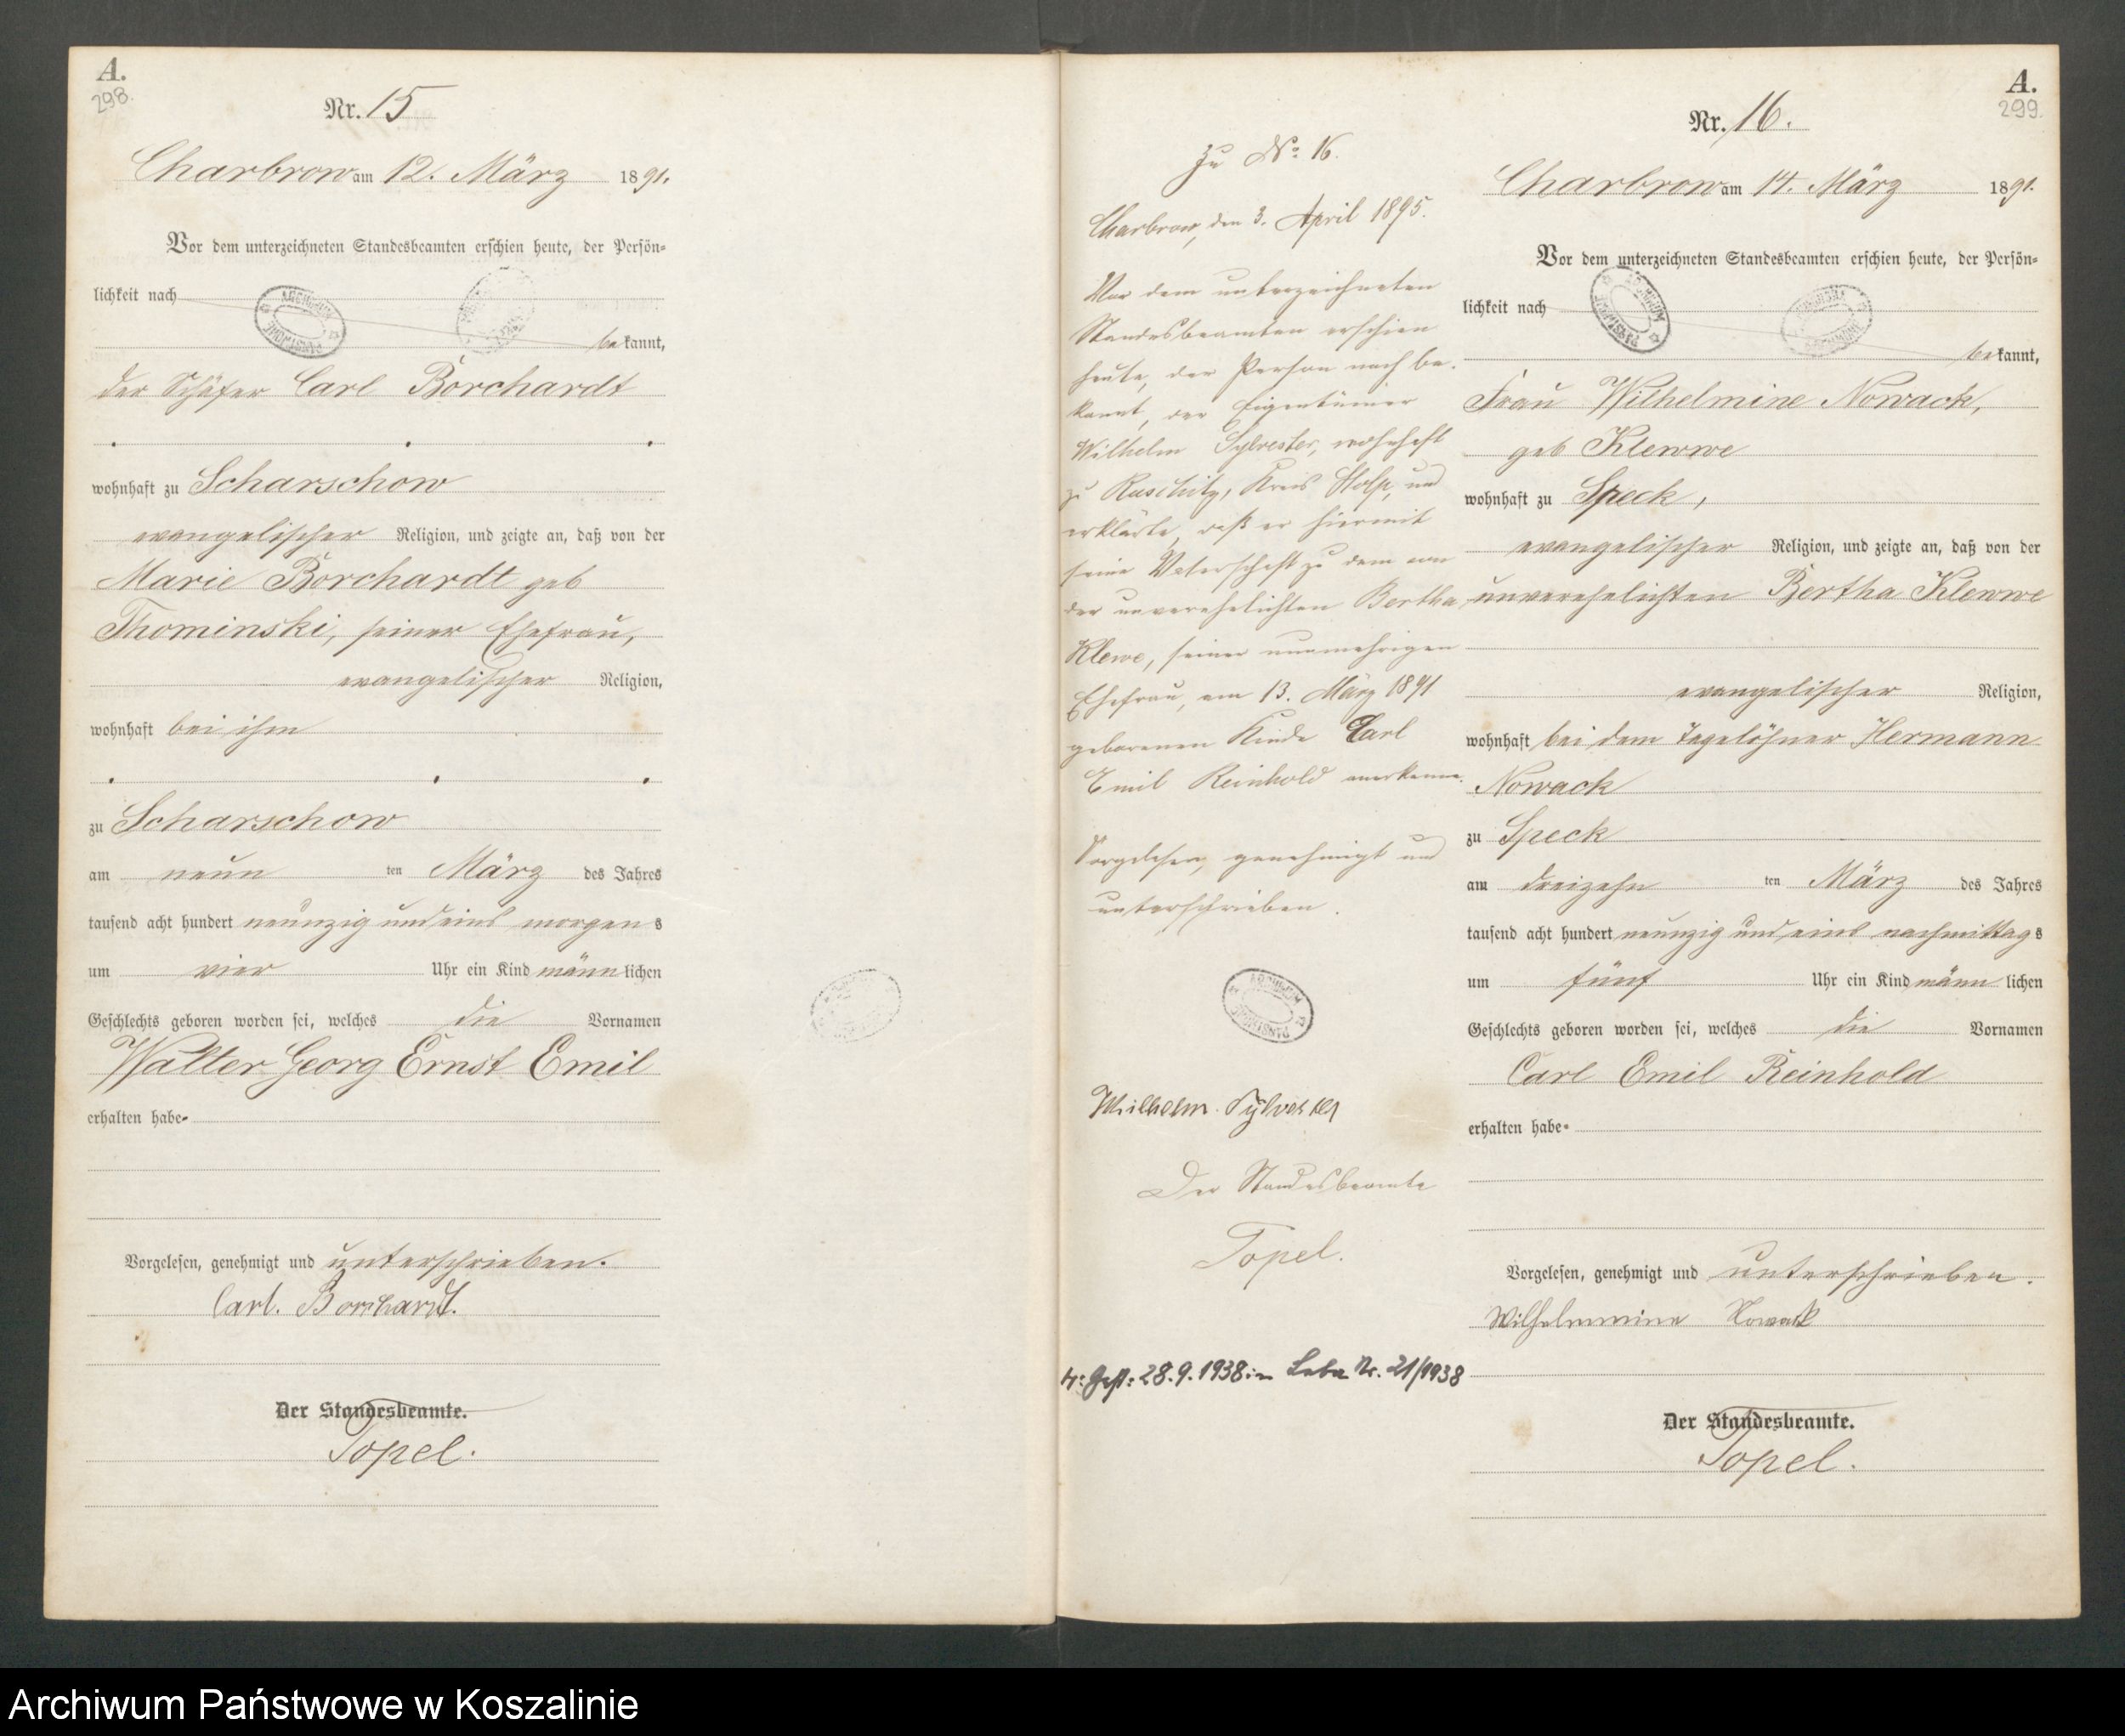 A.
298.
Nr. 15
Charbrow am 12. März 1891.
Vor dem unterzeichneten Standesbeamten erschien heute, der Persön-
lichkeit nach
bekannt,
der Schäfer Carl Borchardt
wohnhaft zu Scharschow
evangelischer Religion, und zeigte an, daß von der
Marie Borchardt geb
Thominski, seiner Ehefrau,
evangelischer Religion,
wohnhaft bei ihm
zu Scharschow
am neun ten März des Jahres
tausend acht hundert neunzig und eins morgens
um vier Uhr ein Kind männlichen
Geschlechts geboren worden sei, welches die Vornamen
Walter Georg Ernst Emil
erhalten habe.
Vorgelesen, genehmigt und unterschrieben.
Carl. Borchardt.
Der Standesbeamte.
Topel.
Zu No 16.
Charbrow, den 3. April 1895.
Vor dem unterzeichneten
Standesbeamten erschien
heute, der Person nach be-
kannt, der Eigentümer
Wilhelm Sylvester, wohnhaft
zu Ruschitz, Kreis Stolp, und
erklärte, daß er hiermit
seine Vaterschaft zu dem von
der unverehelichten Bertha
Klewe, seiner nunmehrigen
Ehefrau, am 13. März 1891
geborenen Kinde Carl
Emil Reinhold anerkenne.
Vorgelesen, genehmigt und
unterschrieben.
Wilhelm Sylvester
Der Standesbeamte
Topel.
Gest: 28.9.1938 in Leba Nr. 21/1938
A.
299.
Nr. 16.
Charbrow am 14. März 1891.
Vor dem unterzeichneten Standesbeamten erschien heute, der Persön-
lichkeit nach
bekannt,
Frau Wilhelmine Nowack,
geb Klewwe
wohnhaft zu Speck,
evangelischer Religion, und zeigte an, daß von der
unverehelichten Bertha Klewwe
evangelischer Religion,
wohnhaft bei dem Tagelöhner Hermann
Nowack
zu Speck
am dreizehn ten März des Jahres
tausend acht hundert neunzig und eins nachmittags
um fünf Uhr ein Kind männlichen
Geschlechts geboren worden sei, welches die Vornamen
Carl Emil Reinhold
erhalten habe.
Vorgelesen, genehmigt und unterschrieben.
Wilhelmine Nowack
Der Standesbeamte.
Topel.
Archiwum Państwowe w Koszalinie